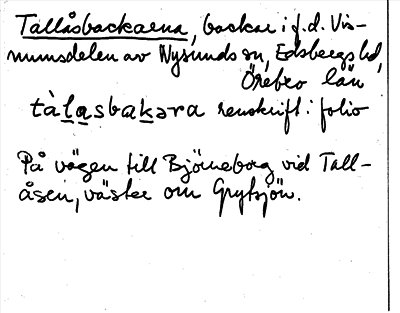 Tallåsbackarna, backar i f.d. Vis-
numsdelen av Nysunds sn, Edsbergs hd,
Örebro län
tàlasbakara renskrift i folio
På vägen till Björneborg vid Tall-
åsen, väster om Grytsjön.